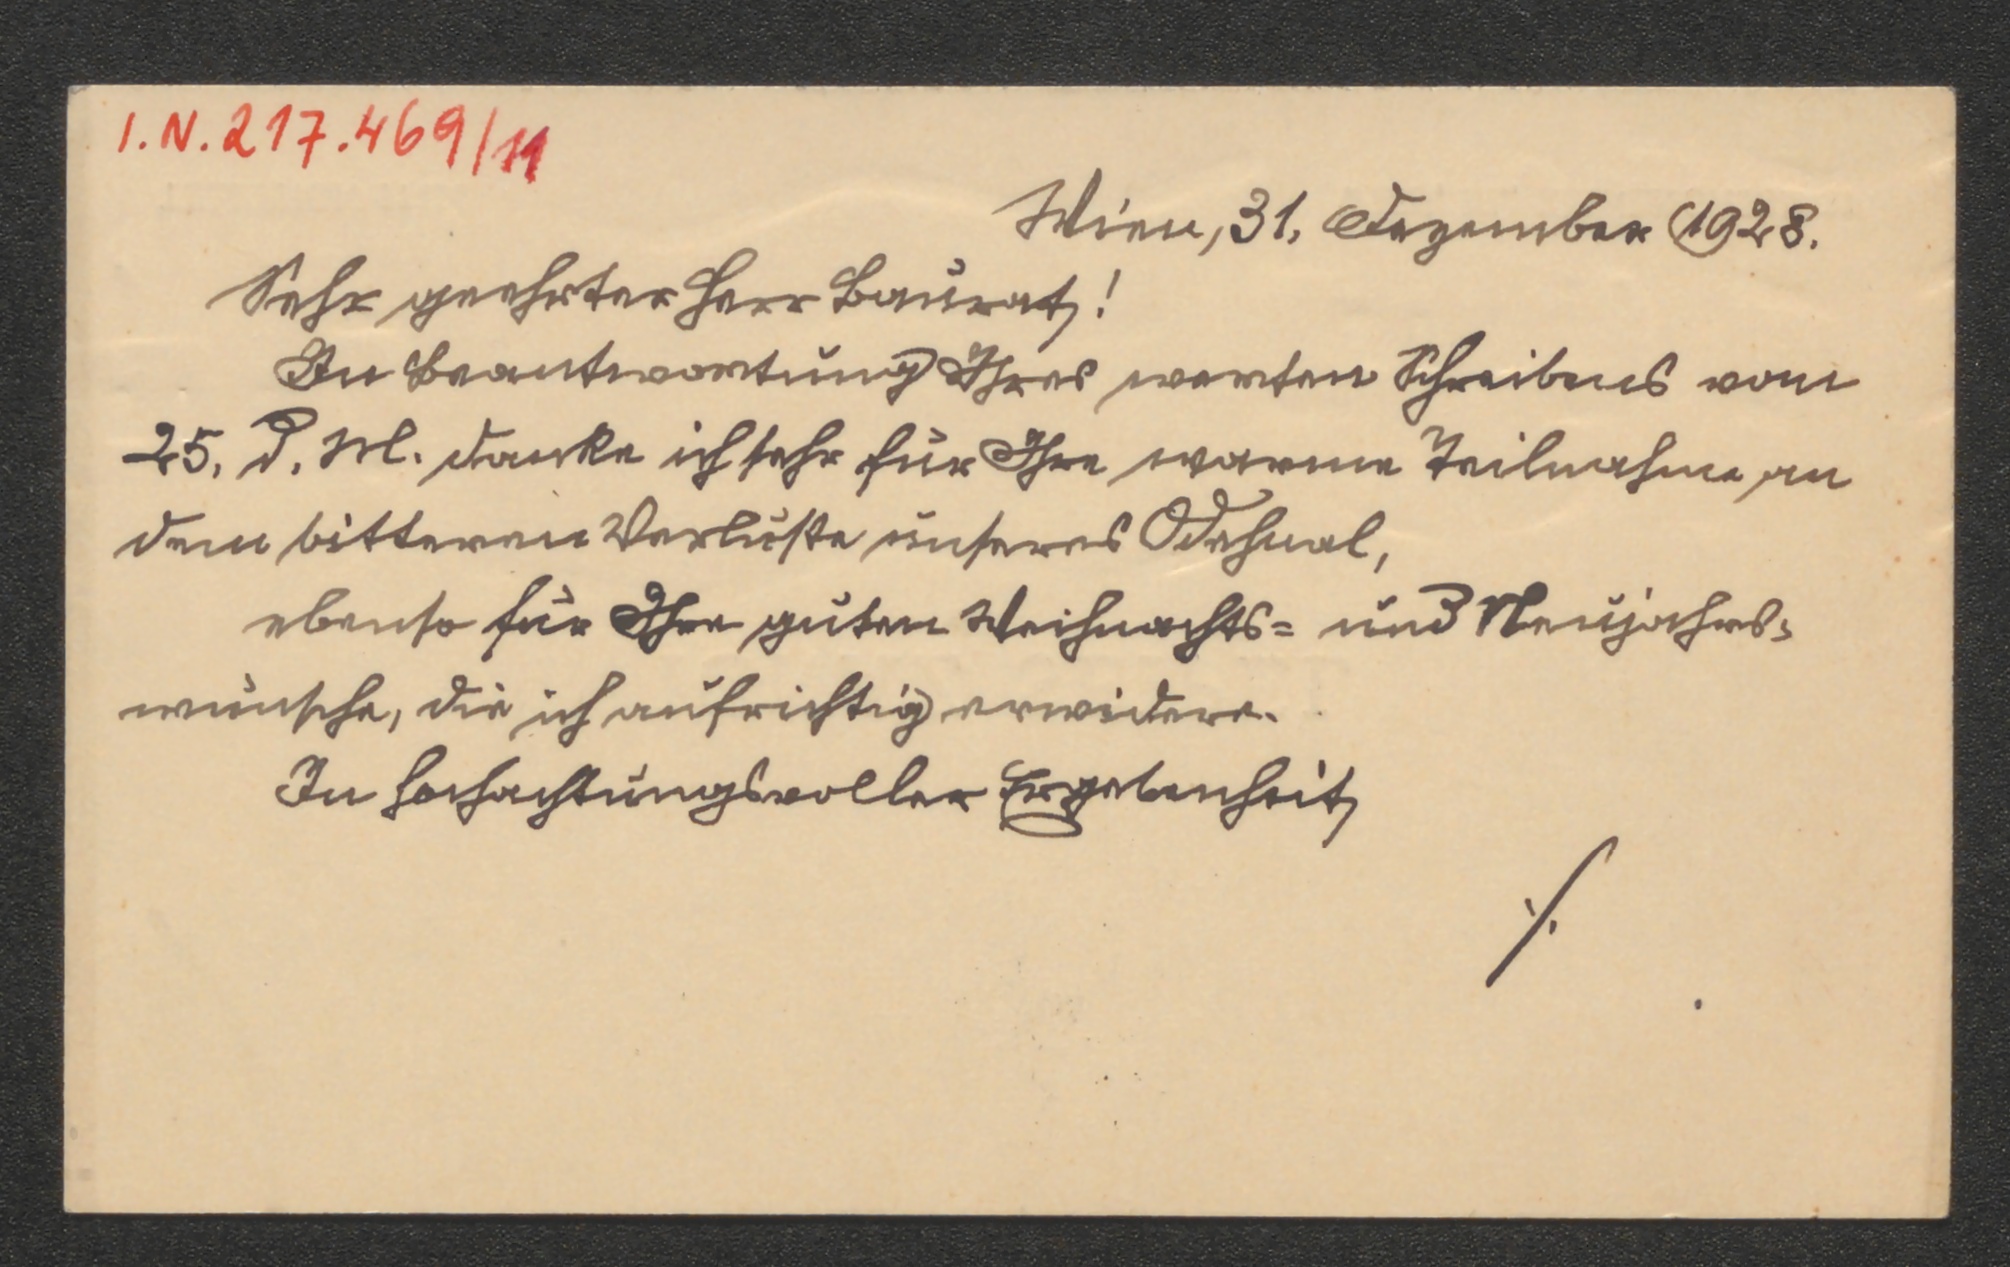 I.N.217.469/11
Wien, 31. Dezember 1928.
Sehr geehrter Herr Baurat!
In Beantwortung Ihres werten Schreibens vom
25. d. M. danke ich sehr für Ihre warme Teilnahme an
dem bitteren Verluste unseres Odehnal,
ebenso für Ihre guten Weihnachts= und Neujahrs=
wünsche, die ich aufrichtig erwidere.
In hochachtungsvoller Ergebenheit
./.